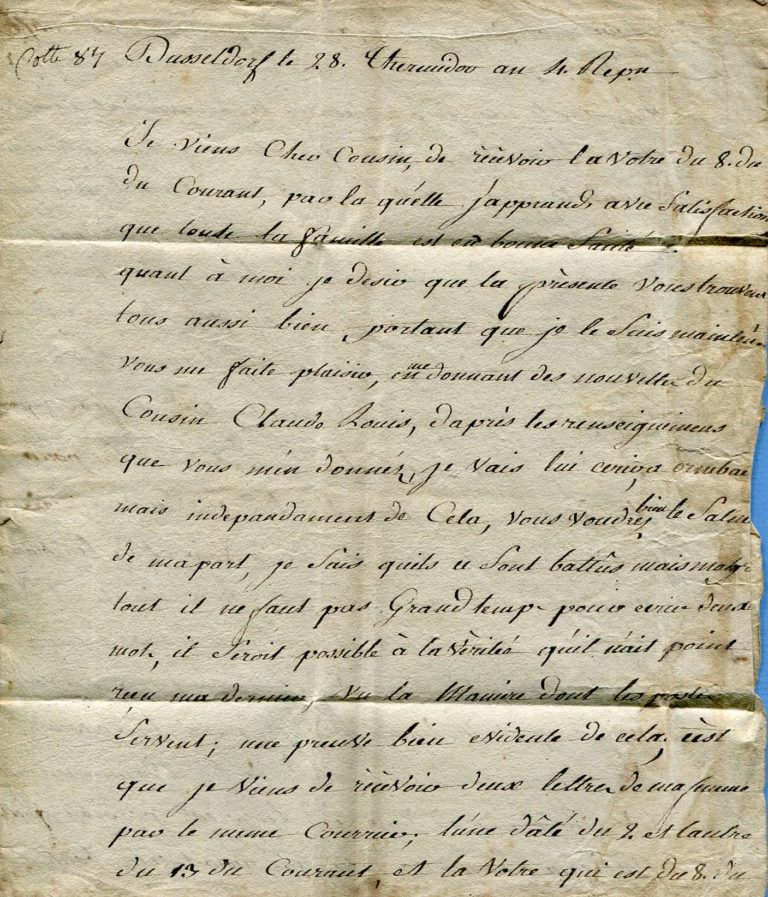 Cotte 87 Dusseldorf le 28. Thermidor an 4. Repn
Je viens Cher Cousin, de récevoir la votre du 8. du
du Courant, par la quélle j'apprends avec Satisfaction
que toute la famille est en bonne Santé.
quant à moi je desir que la présente vous trouve
tous aussi bien, portant que je le Suis
vous me faite plaisir, en me donnant des nouvelle du
Cousin Claude Louis, daprès les renseignemens
que vous m'en donnés, je vais lui
mais independament de Cela, vous voudrés bien le Saluer
de ma part, je Sais quils se Sont battûs mais malgre
tout il ne faut pas Grand temp pour ecrire deux
mot, il Seroit possible à la vérité qu'il n'ait point
reçu ma derniere, vu la Maniere dont les poste
Servent; une preuve bien evidente de cela, cèst
que je viens de récevoir deux lettre de ma femme
par le meme Courrier, l'une dâté du 2. et l'autre
du 13 du Courant, et la Votre qui est du 8. du